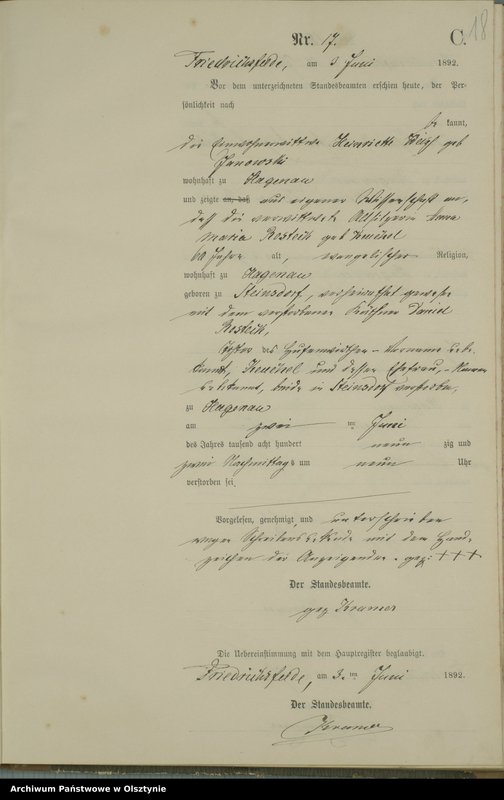 18
Nr. 17. C.
Friedrichsfelde, am 3. Juni 1892.
Vor dem unterzeichneten Standesbeamten erschien heute, der Per-
sönlichkeit nach
be kannt,
die Einwohnerwittwe Heinriette geb
Janowski
wohnhaft zu Hagenau
und zeigte an, daß aus eigener Wissenschaft an,
daß die verwittwete Altsitzerin
Maria Rosteck geb
60 Jahre alt, evangelischer Religion,
wohnhaft zu Hagenau
geboren zu Steinsdorf, verheirathet gewesen
mit dem verstorbenen Käthner Daniel
Rosteck,
Tochter des Hufenwirthen - Vorname unbe-
kannt, und dessen Ehefrau, - Namen
unbekannt, beide in Steinsdorf verstorben,
zu Hagenau
am zwei ten Juni
des Jahres tausend acht hundert neun zig und
zwei Nachmittags um neun Uhr
verstorben sei.
Vorgelesen, genehmigt und unterschrieben
wegen Schreibensunkunde mit dem Hand-
zeichen der Anzeigenden. gez: +++
Der Standesbeamte.
gez Kramer
Die Uebereinstimmung mit dem Hauptregister beglaubigt.
Friedrichsfelde, am 3. ten Juni 1892.
Der Standesbeamte.
Kramer
Archiwum Państwowe w Olsztynie